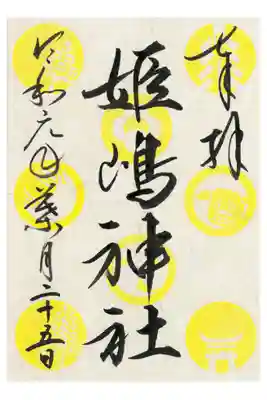 奉拝
姫嶋神社
令和元年葉月二十五日